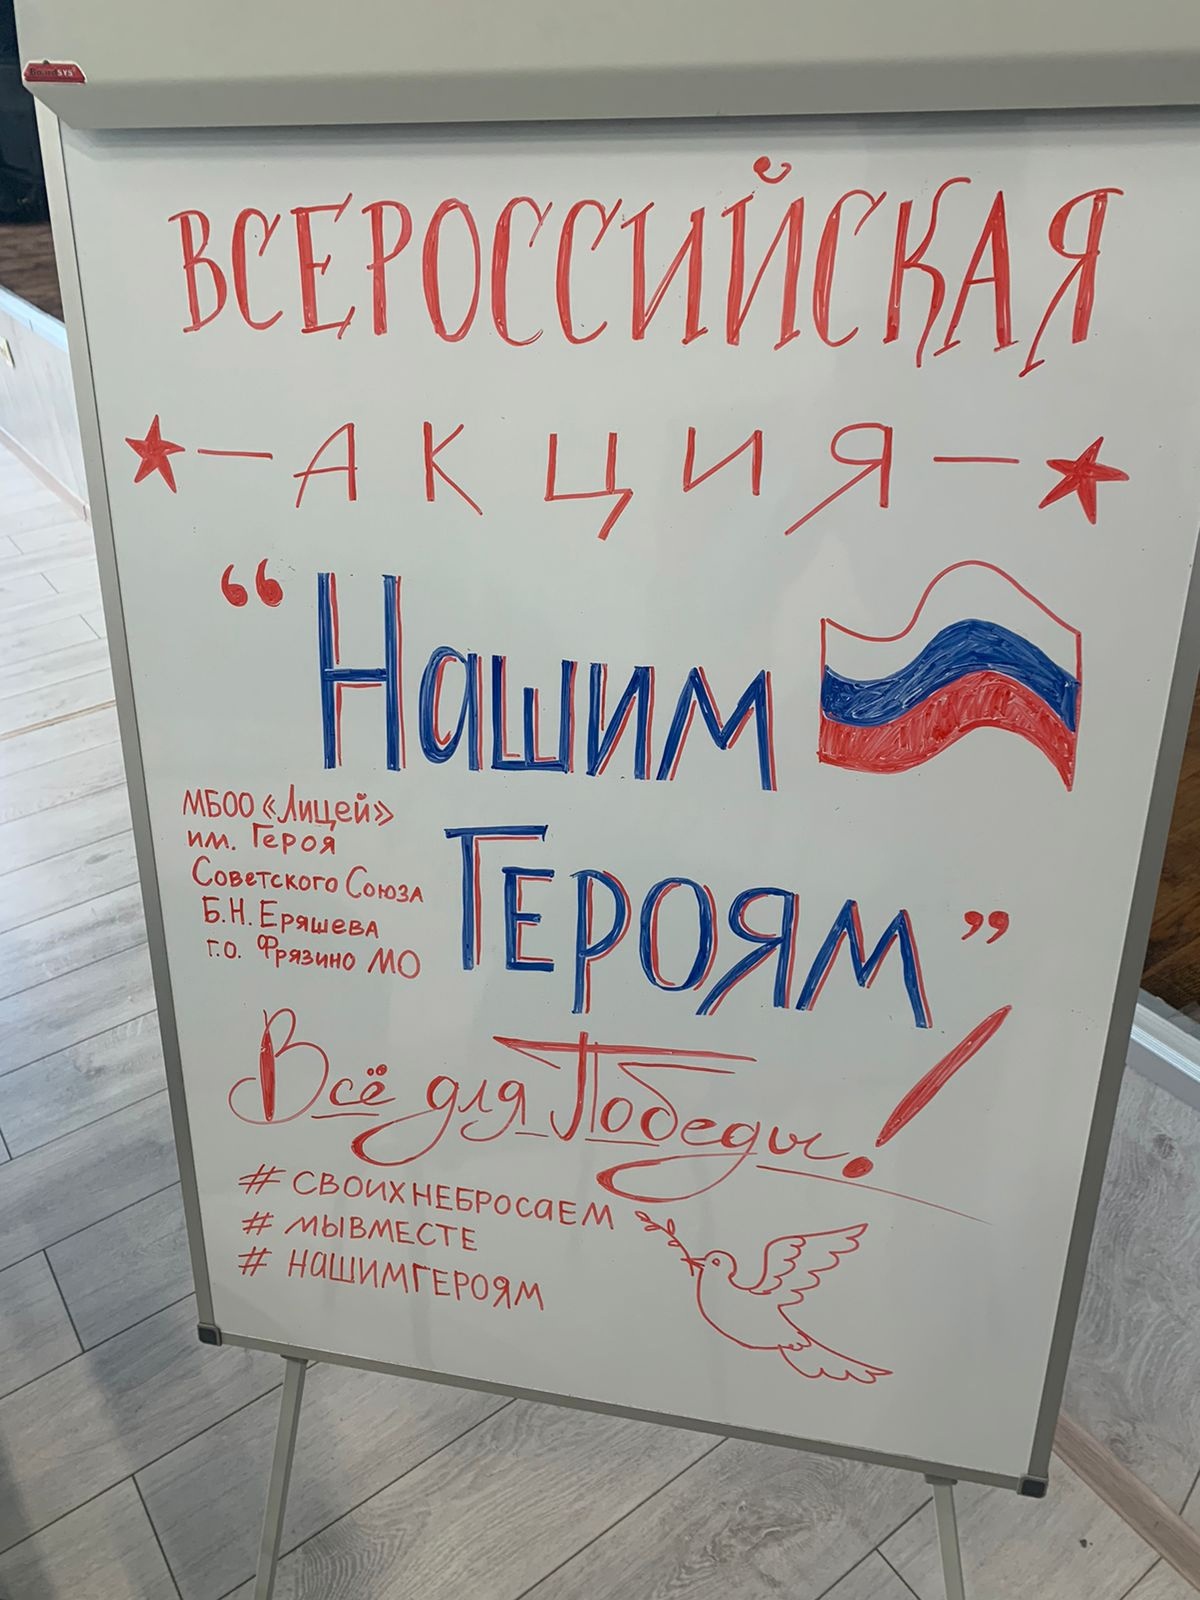 BoardSYS
ВСЕРОССИЙСКАЯ
— АКЦИЯ —
“ Нашим
ГЕРОЯМ ”
МБОО «Лицей»
им. Героя
Советского Союза
Б.Н. Еряшева
г.о. Фрязино МО
Всё для Победы!
# СВОИХНЕБРОСАЕМ
# МЫВМЕСТЕ
# НАШИМГЕРОЯМ